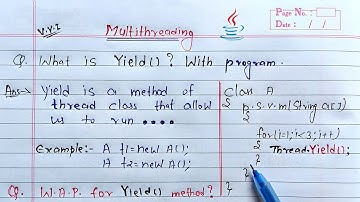 V.V.I
Multithreading
Java
Page No. :
Date : / /
Q. What is Yield()? With program.
Ans:- Yield is a method of
thread class that allow
us to run ....
Example:- A t1=new A();
A t2=new A();
Q. W.A.P. for Yield() method?
Class A
{ p.s.v.m(String a[])
{
for(i=1;i<3;i++)
{ Thread.Yield();
}
}
}